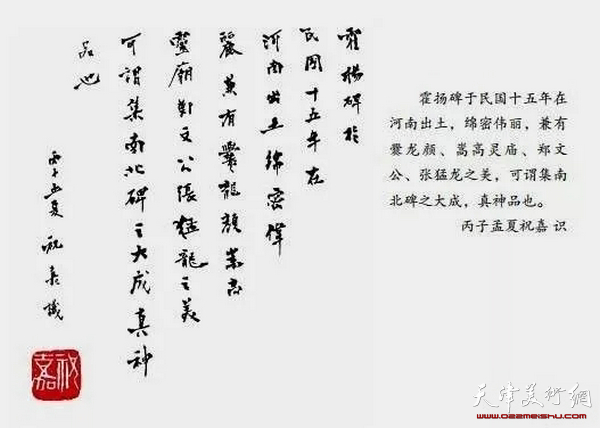 霍楊碑於
民國十五年在
河南出土綿密偉
麗兼有爨龍顔嵩高
靈廟鄭文公張猛龍之美
可謂集南北碑之大成真神
品也
丙子孟夏祝嘉識
祝嘉
霍扬碑于民国十五年在
河南出土，绵密伟丽，兼有
爨龙颜、嵩高灵庙、郑文
公、张猛龙之美，可谓集南
北碑之大成，真神品也。
丙子孟夏祝嘉 识
天津美術網
www.022meishu.com